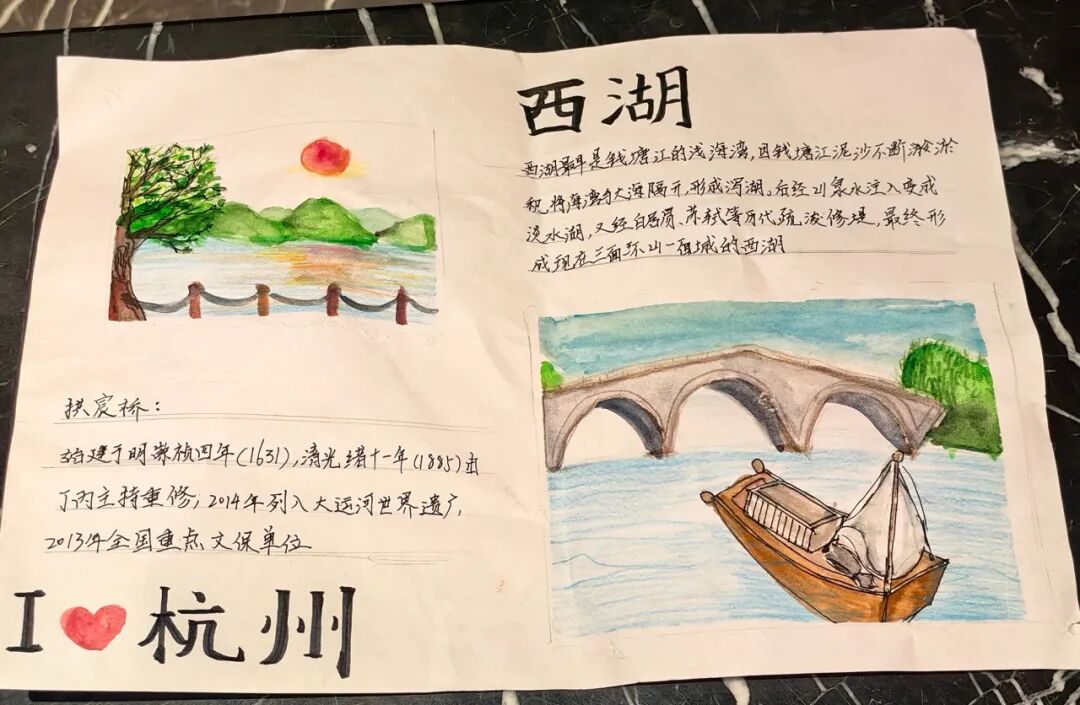 西湖
西湖最早是钱塘江的浅海湾,因钱塘江泥沙不断淤
积,将海湾与大海隔开,形成泻湖,后经山泉水注入变成
淡水湖,又经白居易、苏轼等历代疏浚修堤,最终形
成现在三面环山一面城的西湖
拱宸桥:
始建于明崇祯四年(1631),清光绪十一年(1885)由
丁丙主持重修;2014年列入大运河世界遗产,
2013年全国重点文保单位
I 杭州